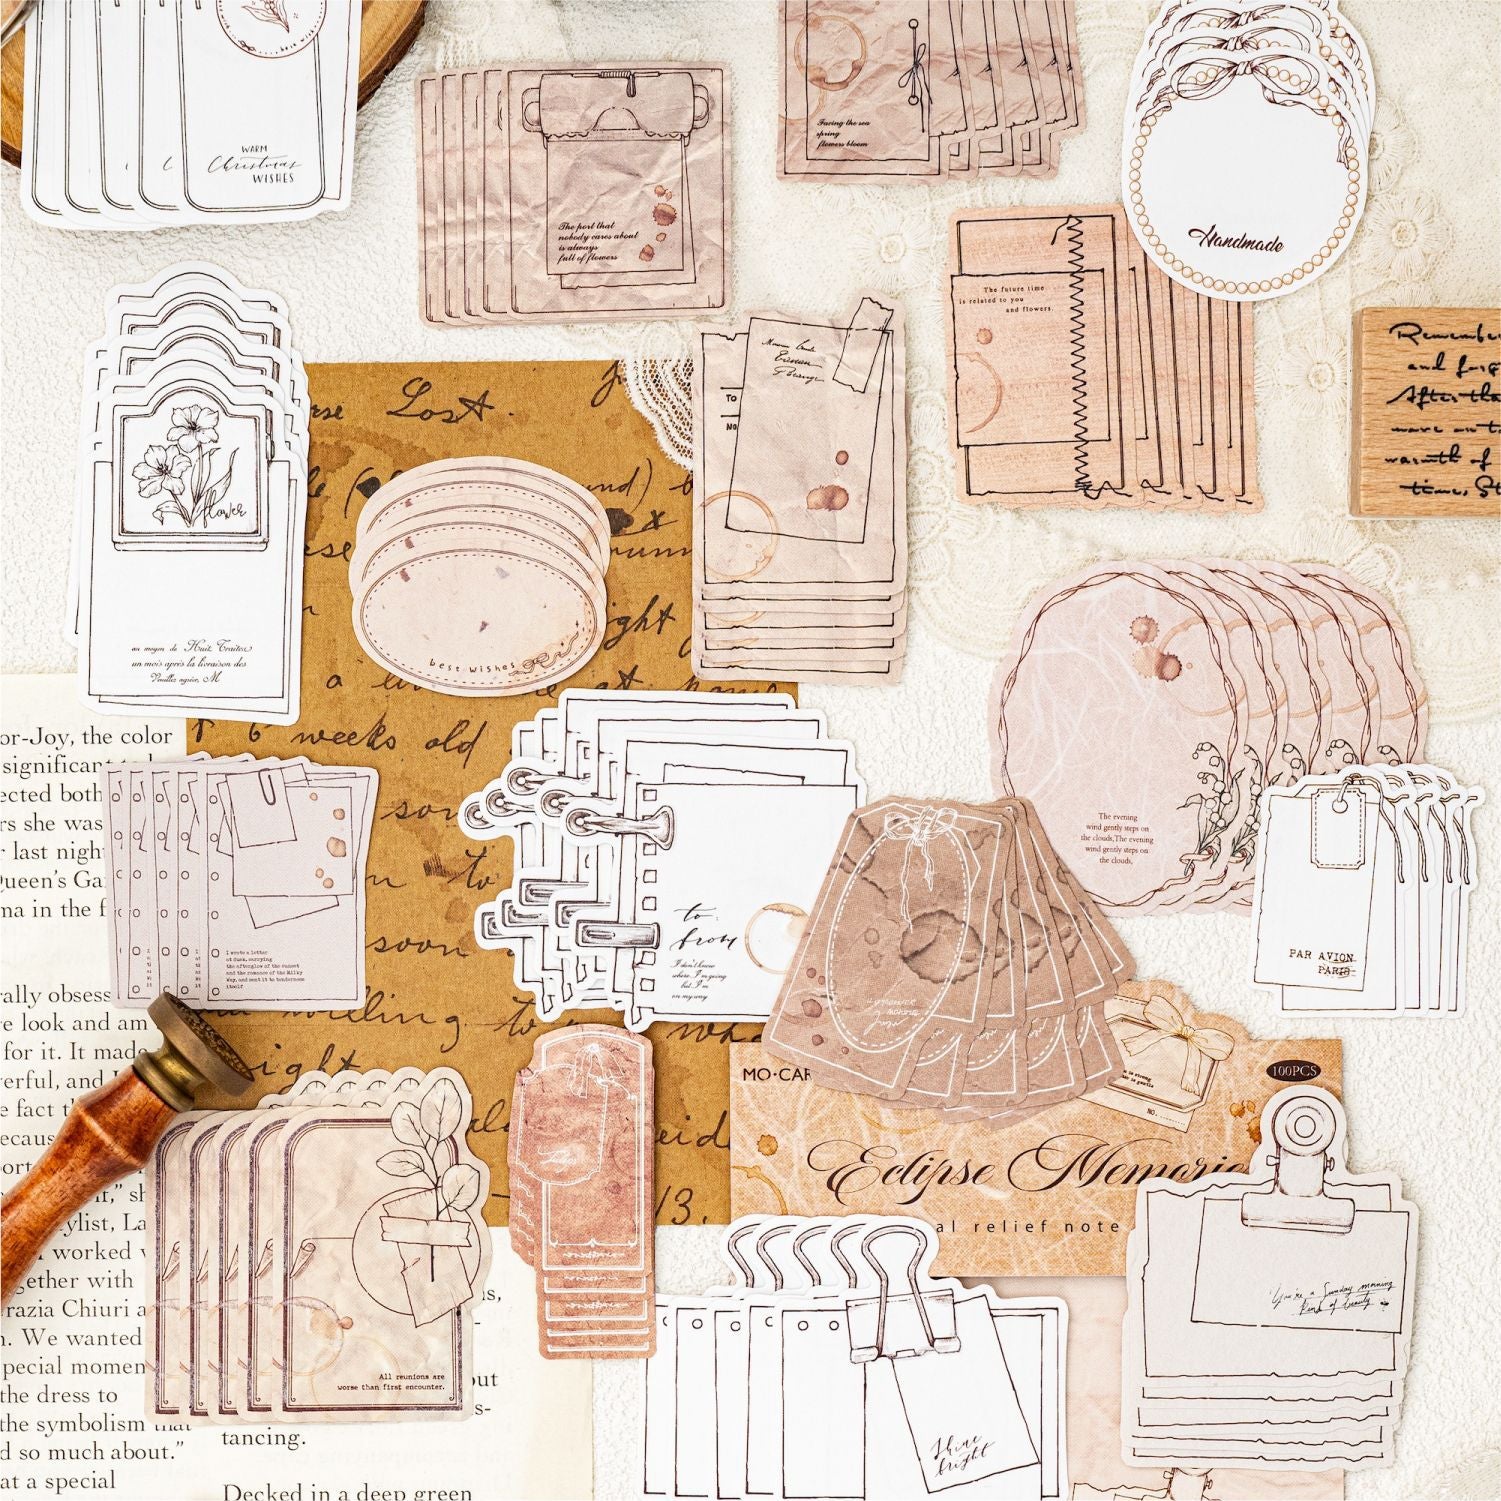 WARM
Christmas
WISHES
best wish
The port that
nobody cares about
is always
full of flowers
Facing the sea
spring
flowers bloom
Handmade
The future time
is related to you
and flowers.
Remembe
and forg
After tha
warmth of
time, St
TO
NO
Lost.
flower
au moyen de Huit Traites
un mois après la livraison des
Veuillez agréer, M
best wishes
night
a li at home
6 weeks old
son
to
soon
willing to
ight
13.
or-Joy, the color
significant
ected both
rs she was
r last nigh
Queen's Ga
ma in the f
I wrote a letter
at dusk, carrying
the afterglow of the sunset
and the romance of the Milky
Way, and sent it to tenderness
itself
to:
from
I don't know
where I'm going
but I'm
on my way
The evening
wind gently steps on
the clouds,The evening
wind gently steps on
the clouds,
PAR AVION
PARIS
rally obsess
re look and am
for it. It made
verful, and I
e fact t
ecaus
port
it," sh
ylist, La
worked
gether with
razia Chiuri a
n. We wanted
pecial momen
the dress to
the symbolism that
d so much about."
at a special
out
s-
tancing.
Decked in a deep green
All reunions are
worse than first encounter.
MO·CAR
100PCS
is strong
is gentle
NO.
Eclipse Memorie
al relief note
You're a Sunday morning
kind of beauty
Shine
bright